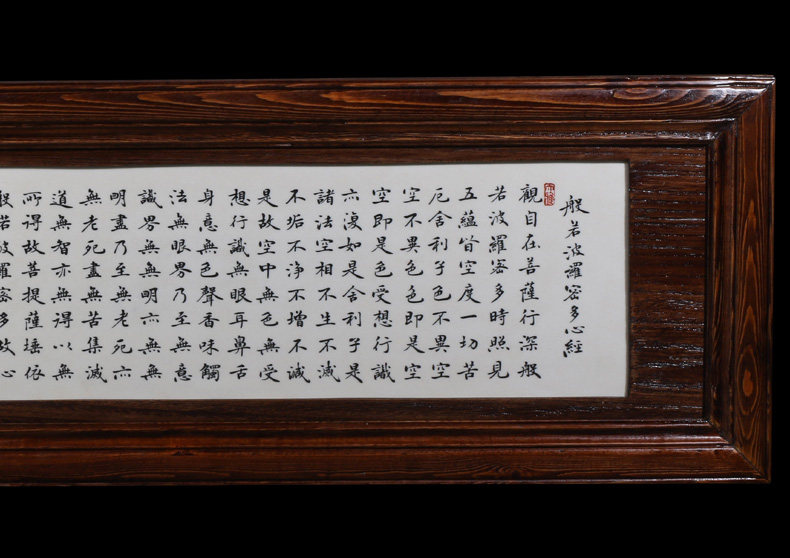 般若波羅密多心經
觀自在菩薩行深般
若波羅密多時照見
五蘊皆空度一切苦
厄舍利子色不異空
空不異色色即是空
空即是色受想行識
亦復如是舍利子是
諸法空相不生不滅
不垢不淨不增不減
是故空中無色無受
想行識無眼耳鼻舌
身意無色聲香味觸
法無眼界乃至無意
識界無無明亦無無
明盡乃至無老死亦
無老死盡無苦集滅
道無智亦無得以無
所得故菩提薩埵依
般若波羅密多故心